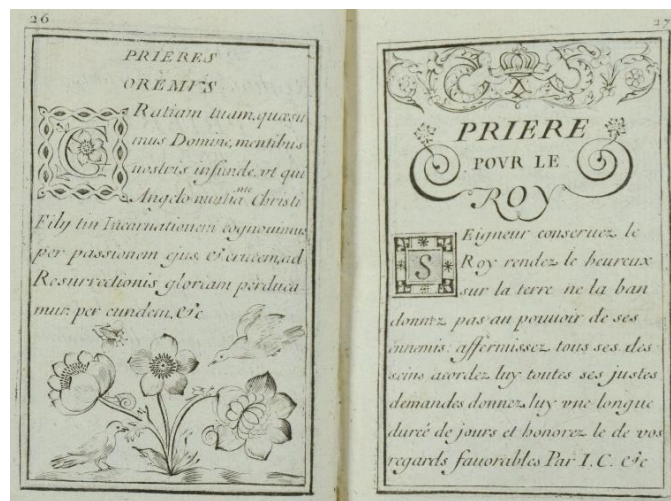 26
PRIERES
OREMUS
GRatiam tuam, quæsu
mus Domine, mentibus
nostris infunde, vt qui
Angelo nuntia nte Christi
Filij tui Incarnationem cognouimus
per passionem ejus & crucem, ad
Resurrectionis gloriam perduca
mur per eundem, &c
27
PRIERE
POVR LE
ROY
SEigneur conseruez le
Roy rendez le heureux
sur la terre ne la ban
donnez pas au pouuoir de ses
ennemis: affermissez tous ses des
seins acordez luy toutes ses justes
demandes donnez luy vne longue
durcé de jours et honorez le de vos
regards fauorables Par I. C. &c